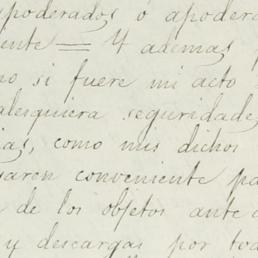 apoderados ó apodera
ente = Y ademas
no si fuere mi acto
alesquiera seguridade
ias, como mis dichos
saren conveniente pa
de los objetos ante
y descargas por tod